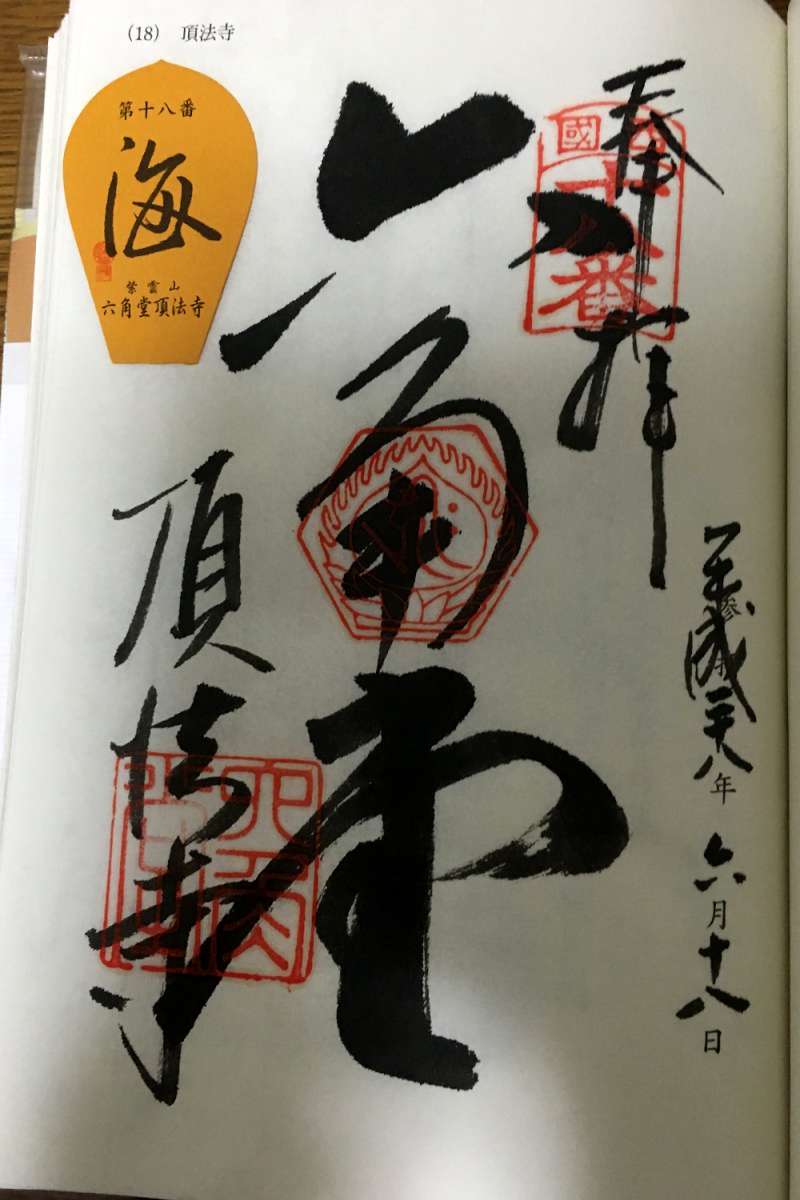 (18) 頂法寺
第十八番
海
紫雲山
六角堂頂法寺
奉拝
西國
十八番
平成二十八年 六月十八日
六角堂
頂法寺